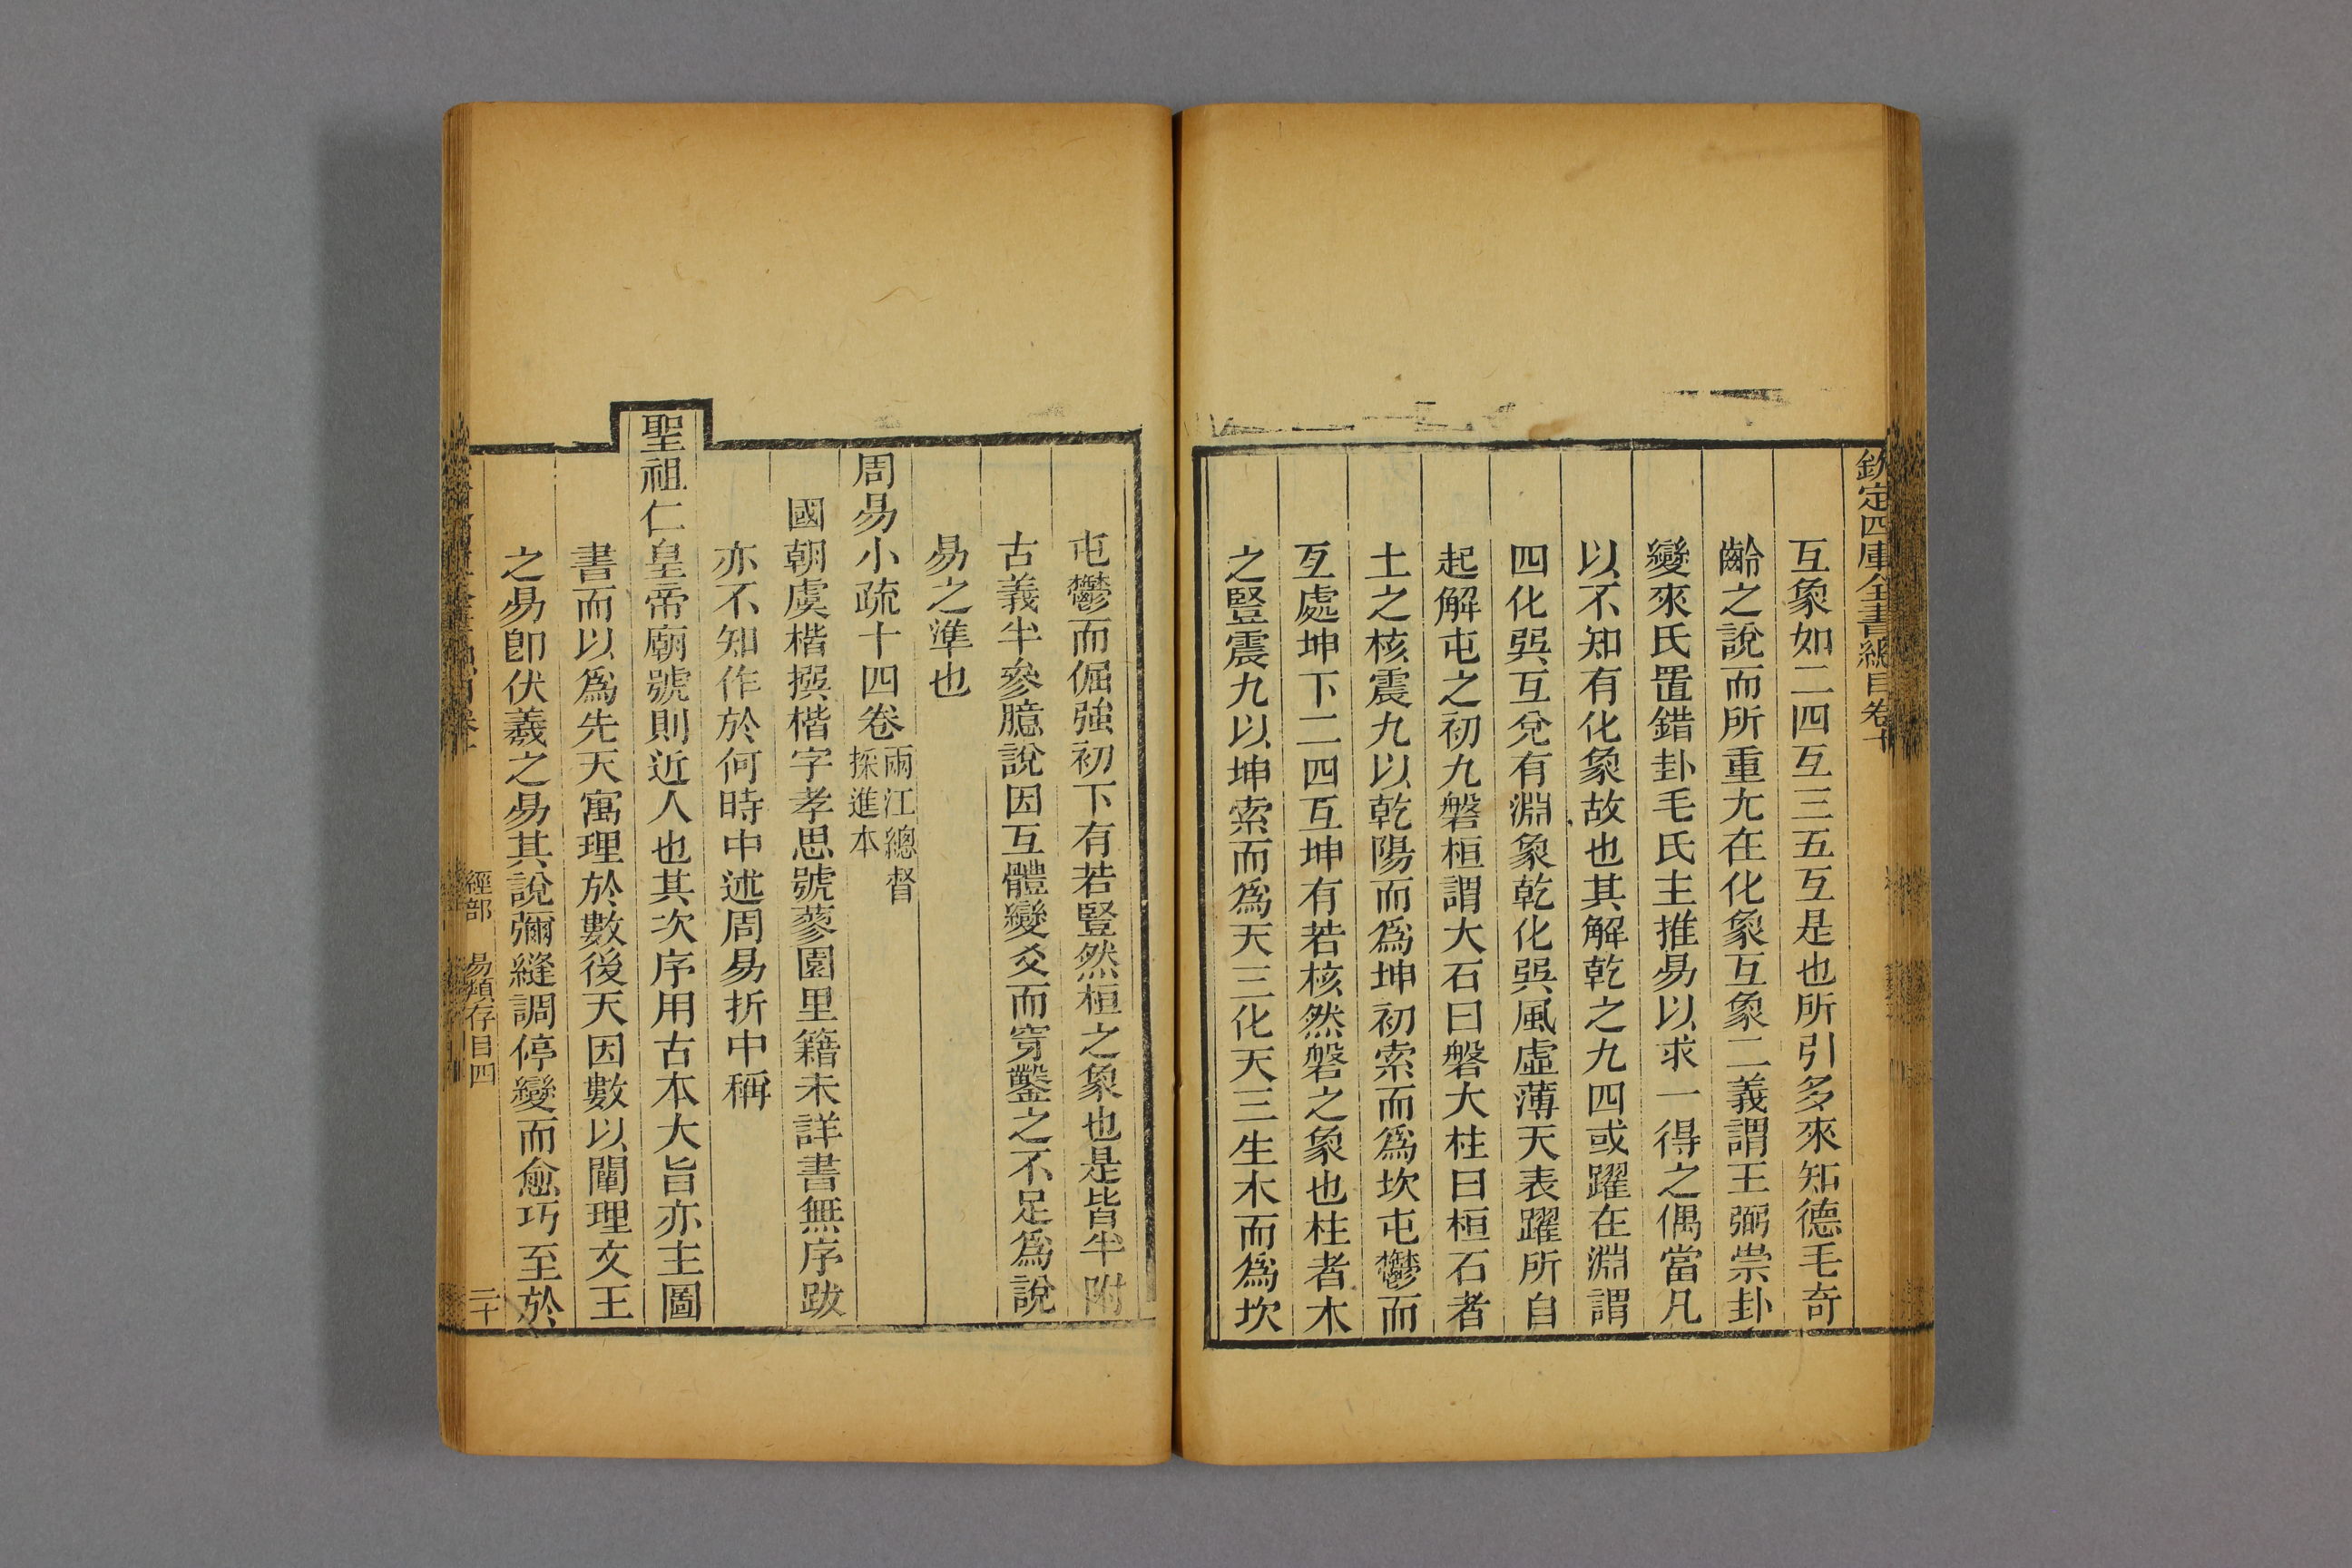 欽定四庫全書總目卷十
互象如二四互三五互是也所引多來知德毛奇
齡之說而所重尤在化象互象二義謂王弼祟卦
變來氏置錯卦毛氏主推易以求一得之偶當凡
以不知有化象故也其解乾之九四或躍在淵謂
四化巽互兌有淵象乾化巽風虛薄天表躍所自
起解屯之初九磐桓謂大石曰磐大柱曰桓石者
土之核震九以乾陽而爲坤初索而爲坎屯鬱而
互處坤下二四互坤有若核然磐之象也柱者木
之豎震九以坤索而爲天三化天三生木而爲坎
屯鬱而倔強初下有若豎然桓之象也是皆半附
古義半參臆說因互體變爻而穿鑿之不足爲說
易之準也
周易小疏十四卷兩江總督
採進本
國朝虞楷撰楷字孝思號蓼園里籍未詳書無序跋
亦不知作於何時中述周易折中稱
聖祖仁皇帝廟號則近人也其次序用古本大旨亦主圖
書而以爲先天寓理於數後天因數以闡理文王
之易卽伏羲之易其說彌縫調停變而愈巧至於
經部 易類存目四 二十